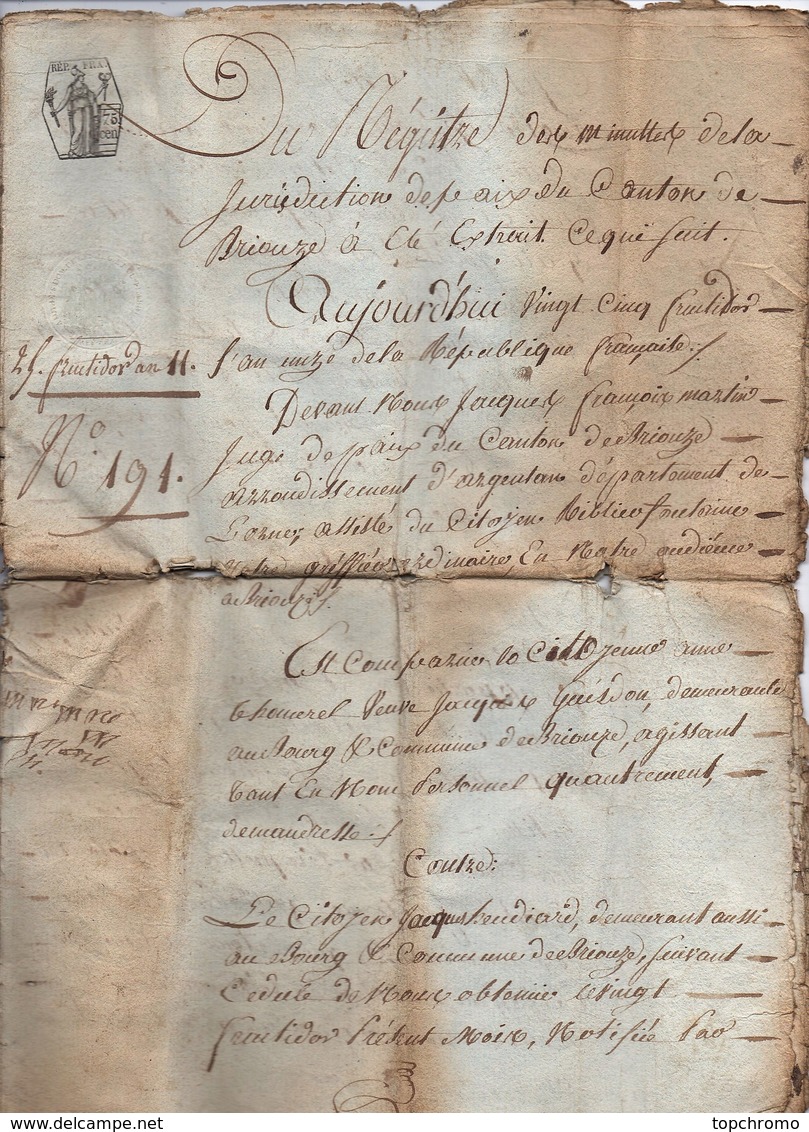 RÉP. FRA.
75 cen
Du Régitre des minuttes de la
Jurisdiction de paix du Canton de
Briouze à Eté Extrait Ce qui suit.
Aujourd'hui vingt cinq fructidor
25. fructidor an 11.
l'an onze de la République française./
Devant Nous Jacques françois martin
Juge de paix du Canton de Briouze
N.º 191.
arrondissement d'argentan département de
L'orne, assisté du Citoyen fontaine
Notre gréffier ordinaire, En Notre audience
a Briouze./.
Est Comparüe la Citoyenne anne
thomerel Veuve Jacques Guesdon, demeurante
au Bourg & Commune de Briouze, agissant
tant En Nom Personnel qu'autrement,
demandresse./
Contre:
Le Citoyen Jacques heudiard, demeurant aussi
au Bourg & Commune de Briouze, suivant
Cedule de Nous obtenüe le vingt
fructidor Présent Mois, Notifiée Par
topchromo